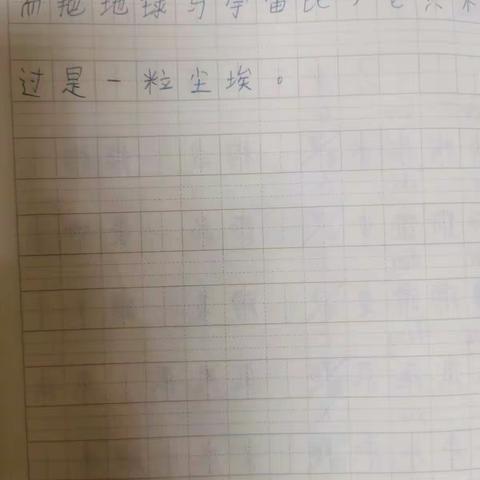 而把地球与宇宙比，它只不
过是一粒尘埃。